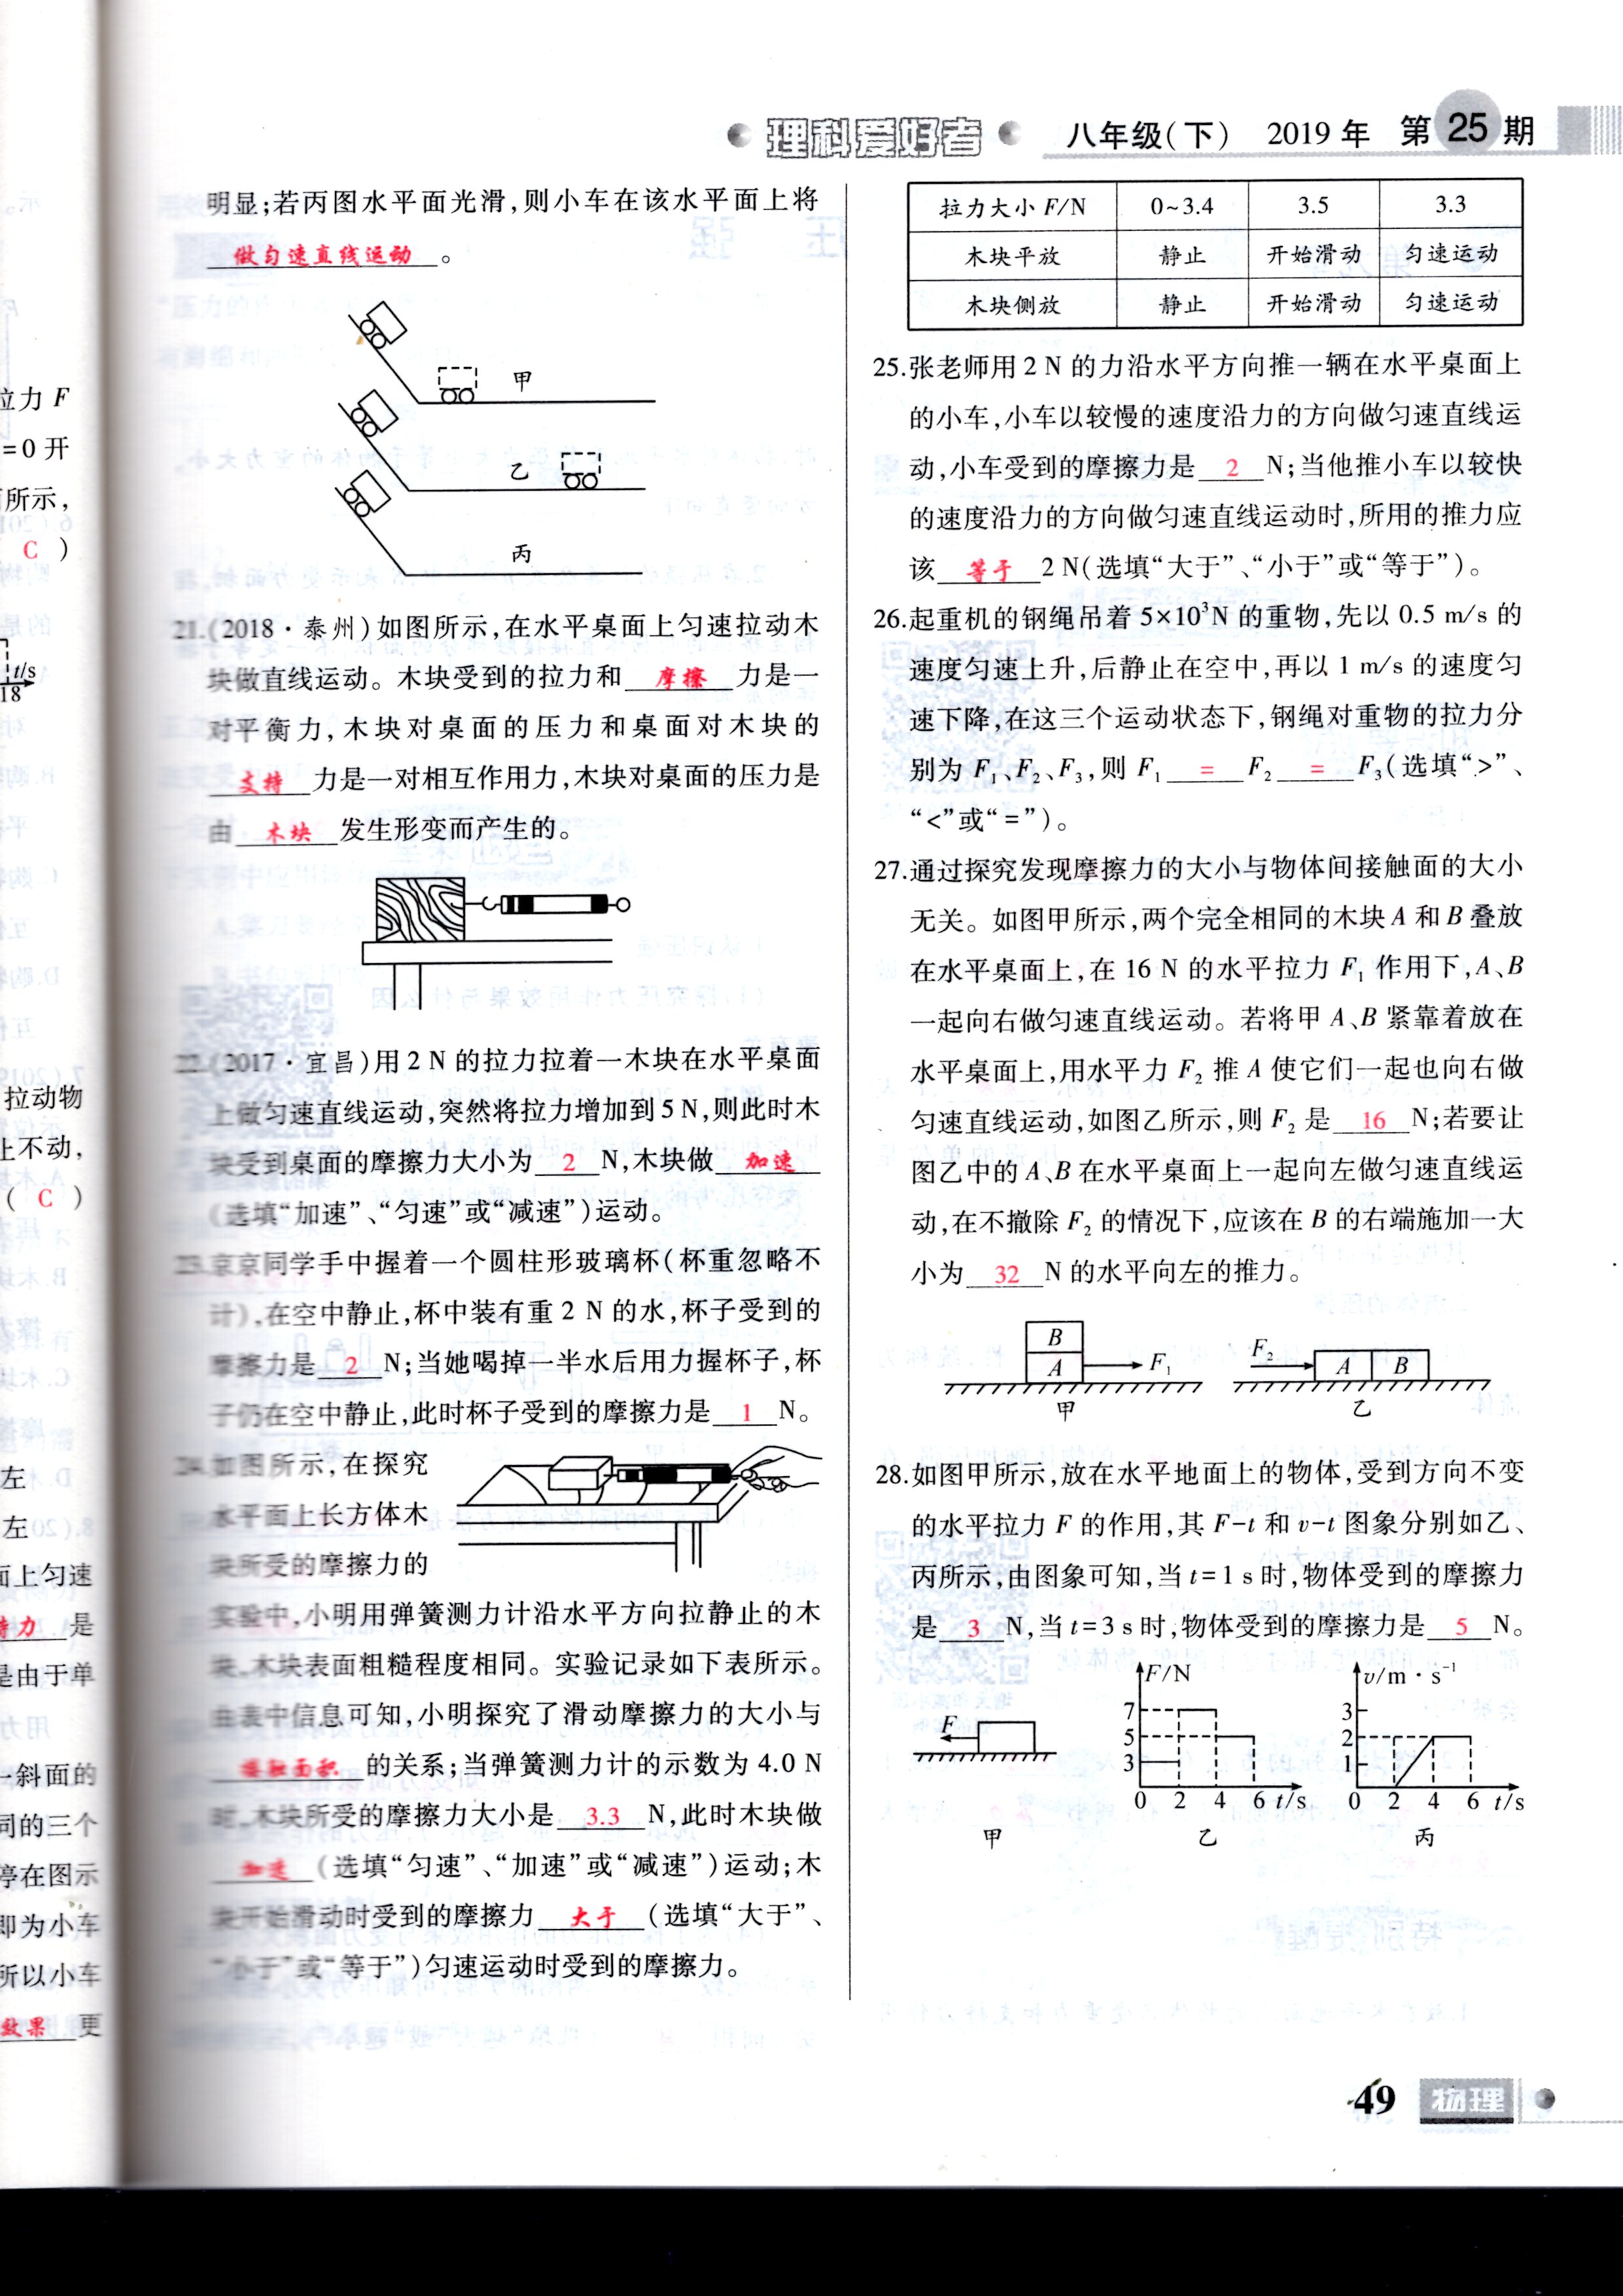 理科爱好者 八年级(下) 2019年 第25期
拉力 F
=0 开
所示,
C )
t/s
18
拉动物
止不动,
( C )
左
左
面上匀速
是
是由于单
斜面的
同的三个
停在图示
即为小车
所以小车
效果 更
明显;若丙图水平面光滑,则小车在该水平面上将
做匀速直线运动。
甲
乙
丙
21.(2018·泰州)如图所示,在水平桌面上匀速拉动木
块做直线运动。木块受到的拉力和 摩擦 力是一
对平衡力,木块对桌面的压力和桌面对木块的
支持 力是一对相互作用力,木块对桌面的压力是
由 木块 发生形变而产生的。
22.(2017·宜昌)用 2 N 的拉力拉着一木块在水平桌面
上做匀速直线运动,突然将拉力增加到 5 N,则此时木
块受到桌面的摩擦力大小为 2 N,木块做 加速
(选填“加速”、“匀速”或“减速”)运动。
23.京京同学手中握着一个圆柱形玻璃杯(杯重忽略不
计),在空中静止,杯中装有重 2 N 的水,杯子受到的
摩擦力是 2 N;当她喝掉一半水后用力握杯子,杯
子仍在空中静止,此时杯子受到的摩擦力是 1 N。
24.如图所示,在探究
水平面上长方体木
块所受的摩擦力的
实验中,小明用弹簧测力计沿水平方向拉静止的木
块,木块表面粗糙程度相同。实验记录如下表所示。
由表中信息可知,小明探究了滑动摩擦力的大小与
接触面积 的关系;当弹簧测力计的示数为 4.0 N
时,木块所受的摩擦力大小是 3.3 N,此时木块做
加速 (选填“匀速”、“加速”或“减速”)运动;木
块开始滑动时受到的摩擦力 大于 (选填“大于”、
“小于”或“等于”)匀速运动时受到的摩擦力。
拉力大小 F/N 0~3.4 3.5 3.3
木块平放 静止 开始滑动 匀速运动
木块侧放 静止 开始滑动 匀速运动
25.张老师用 2 N 的力沿水平方向推一辆在水平桌面上
的小车,小车以较慢的速度沿力的方向做匀速直线运
动,小车受到的摩擦力是 2 N;当他推小车以较快
的速度沿力的方向做匀速直线运动时,所用的推力应
该 等于 2 N(选填“大于”、“小于”或“等于”)。
26.起重机的钢绳吊着 5×10³N 的重物,先以 0.5 m/s 的
速度匀速上升,后静止在空中,再以 1 m/s 的速度匀
速下降,在这三个运动状态下,钢绳对重物的拉力分
别为 F₁、F₂、F₃,则 F₁ = F₂ = F₃(选填“>”、
“<”或“=”)。
27.通过探究发现摩擦力的大小与物体间接触面的大小
无关。如图甲所示,两个完全相同的木块 A 和 B 叠放
在水平桌面上,在 16 N 的水平拉力 F₁ 作用下,A、B
一起向右做匀速直线运动。若将甲 A、B 紧靠着放在
水平桌面上,用水平力 F₂ 推 A 使它们一起也向右做
匀速直线运动,如图乙所示,则 F₂ 是 16 N;若要让
图乙中的 A、B 在水平桌面上一起向左做匀速直线运
动,在不撤除 F₂ 的情况下,应该在 B 的右端施加一大
小为 32 N 的水平向左的推力。
B
A F₁
甲
F₂ A B
乙
28.如图甲所示,放在水平地面上的物体,受到方向不变
的水平拉力 F 的作用,其 F-t 和 v-t 图象分别如乙、
丙所示,由图象可知,当 t=1 s 时,物体受到的摩擦力
是 3 N,当 t=3 s 时,物体受到的摩擦力是 5 N。
F
甲
F/N
7
5
3
0 2 4 6 t/s
乙
v/m·s⁻¹
3
2
1
0 2 4 6 t/s
丙
49 物理